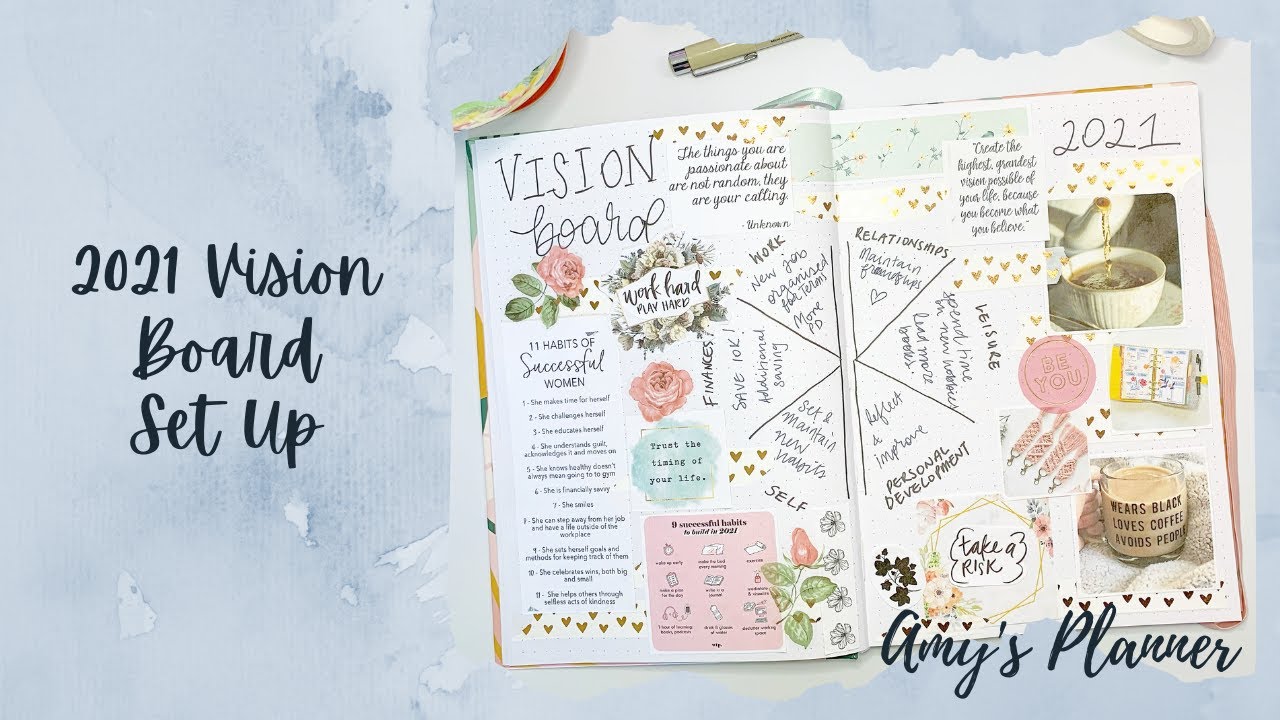 2021 Vision
Board
Set Up
VISION
board
The things you are
passionate about
are not random, they
are your calling.
- Unknown
"Create the
highest, grandest
vision possible of
your life, because
you become what
you believe."
2021
work hard
PLAY HARD
11 HABITS OF
Successful
WOMEN
1 - She makes time for herself
2 - She challenges herself
3 - She educates herself
4 - She understands guilt,
acknowledges it and moves on
5 - She knows healthy doesn't
always mean going to to gym
6 - She is financially savvy
7 - She smiles
9 - She can step away from her job
and have a life outside of the
workplace
9 - She sets herself goals and
methods for keeping track of them
10 - She celebrates wins, both big
and small
11 - She helps others through
selfless acts of kindness
WORK
New job
organised
for Term 1
More
PD
RELATIONSHIPS
Maintain
friendships
FINANCES
SAVE 10K!
Additional
saving
LEISURE
Spend time
on new hobbies
read more
books
SELF
Set &
maintain
new
habits
PERSONAL
DEVELOPMENT
Reflect
&
improve
Trust the
timing of
your life.
BE
YOU
9 successful habits
to build in 2021
wake up early
make the bed
every morning
exercise
make a plan
for the day
write in a
journal
1 hour of learning:
books, podcasts
drink 8 glasses
of water
declutter working
space
{take a}
{RISK}
WEARS BLACK
LOVES COFFEE
AVOIDS PEOPLE
Amy's Planner